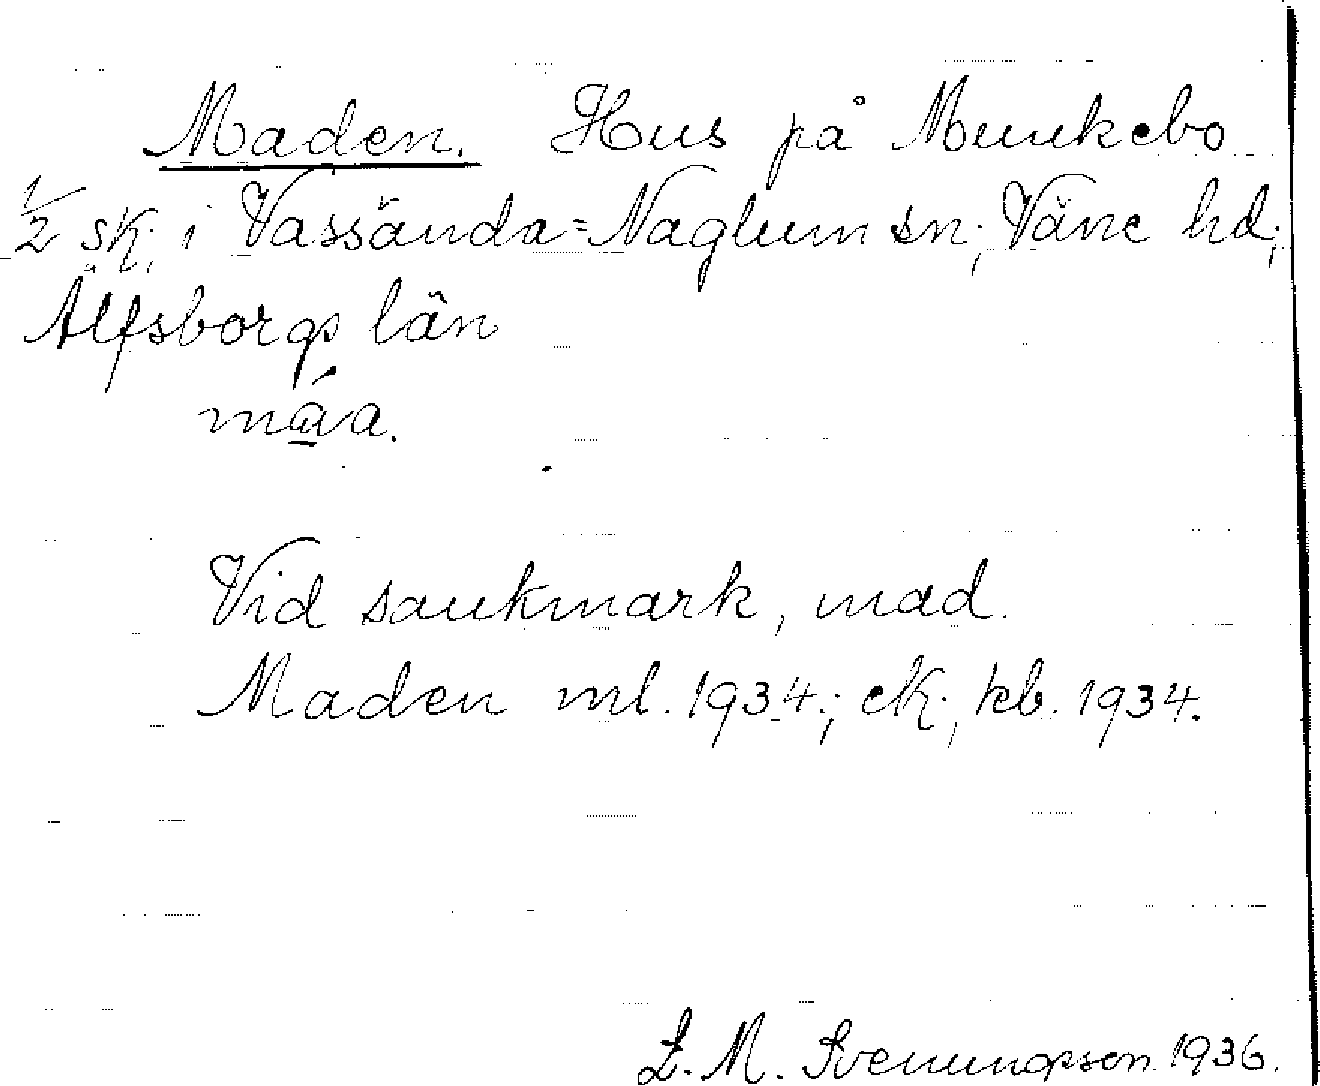 Maden. Hus på Munkebo
1/2 sk; i Vassända=Naglum sn; Väne hd;
Älfsborgs län
máa.
Vid sankmark, mad.
Maden ml. 1934.; ek; kb. 1934.
L. M. Svenungsson 1936.